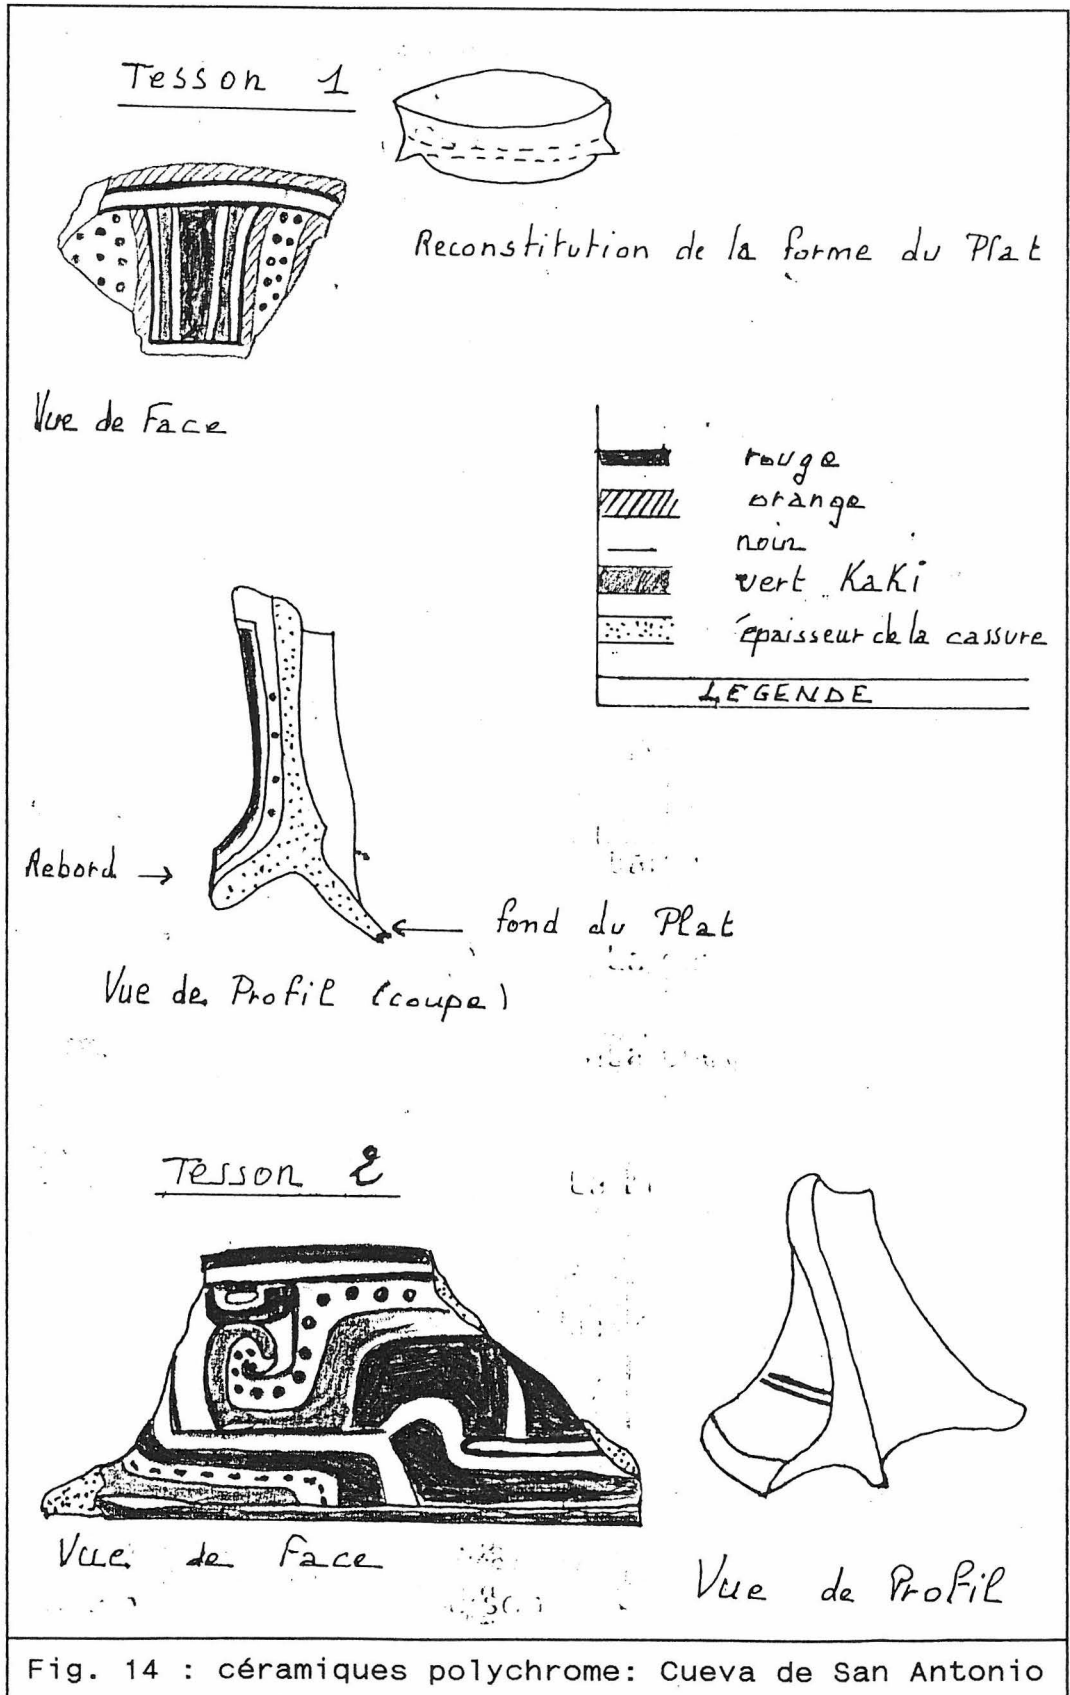 Tesson 1
Reconstitution de la forme du Plat
Vue de Face
rouge
orange
noir
vert Kaki
épaisseur de la cassure
LEGENDE
Rebord →
← fond du Plat
Vue de Profil (coupe)
Tesson 2
Vue de Face
Vue de Profil
Fig. 14 : céramiques polychrome: Cueva de San Antonio